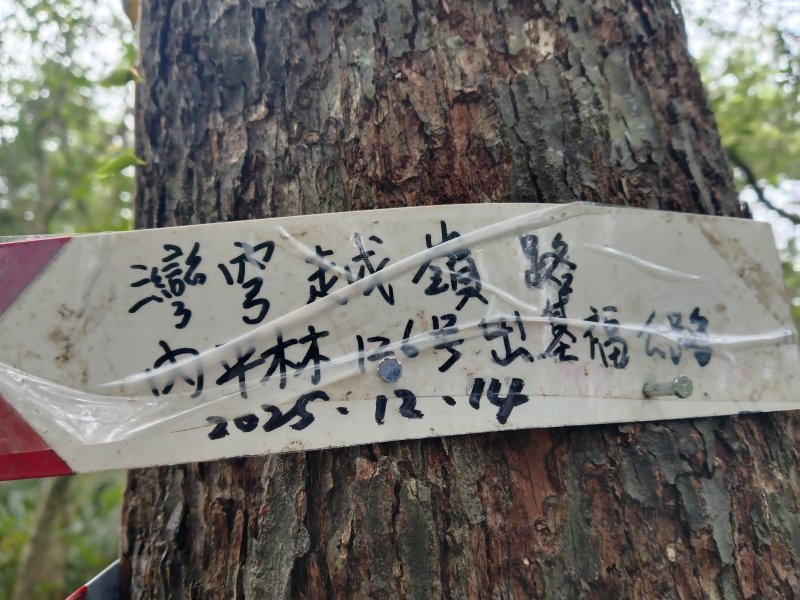 灣穹越嶺路
內平林126号出基福公路
2025.12.14